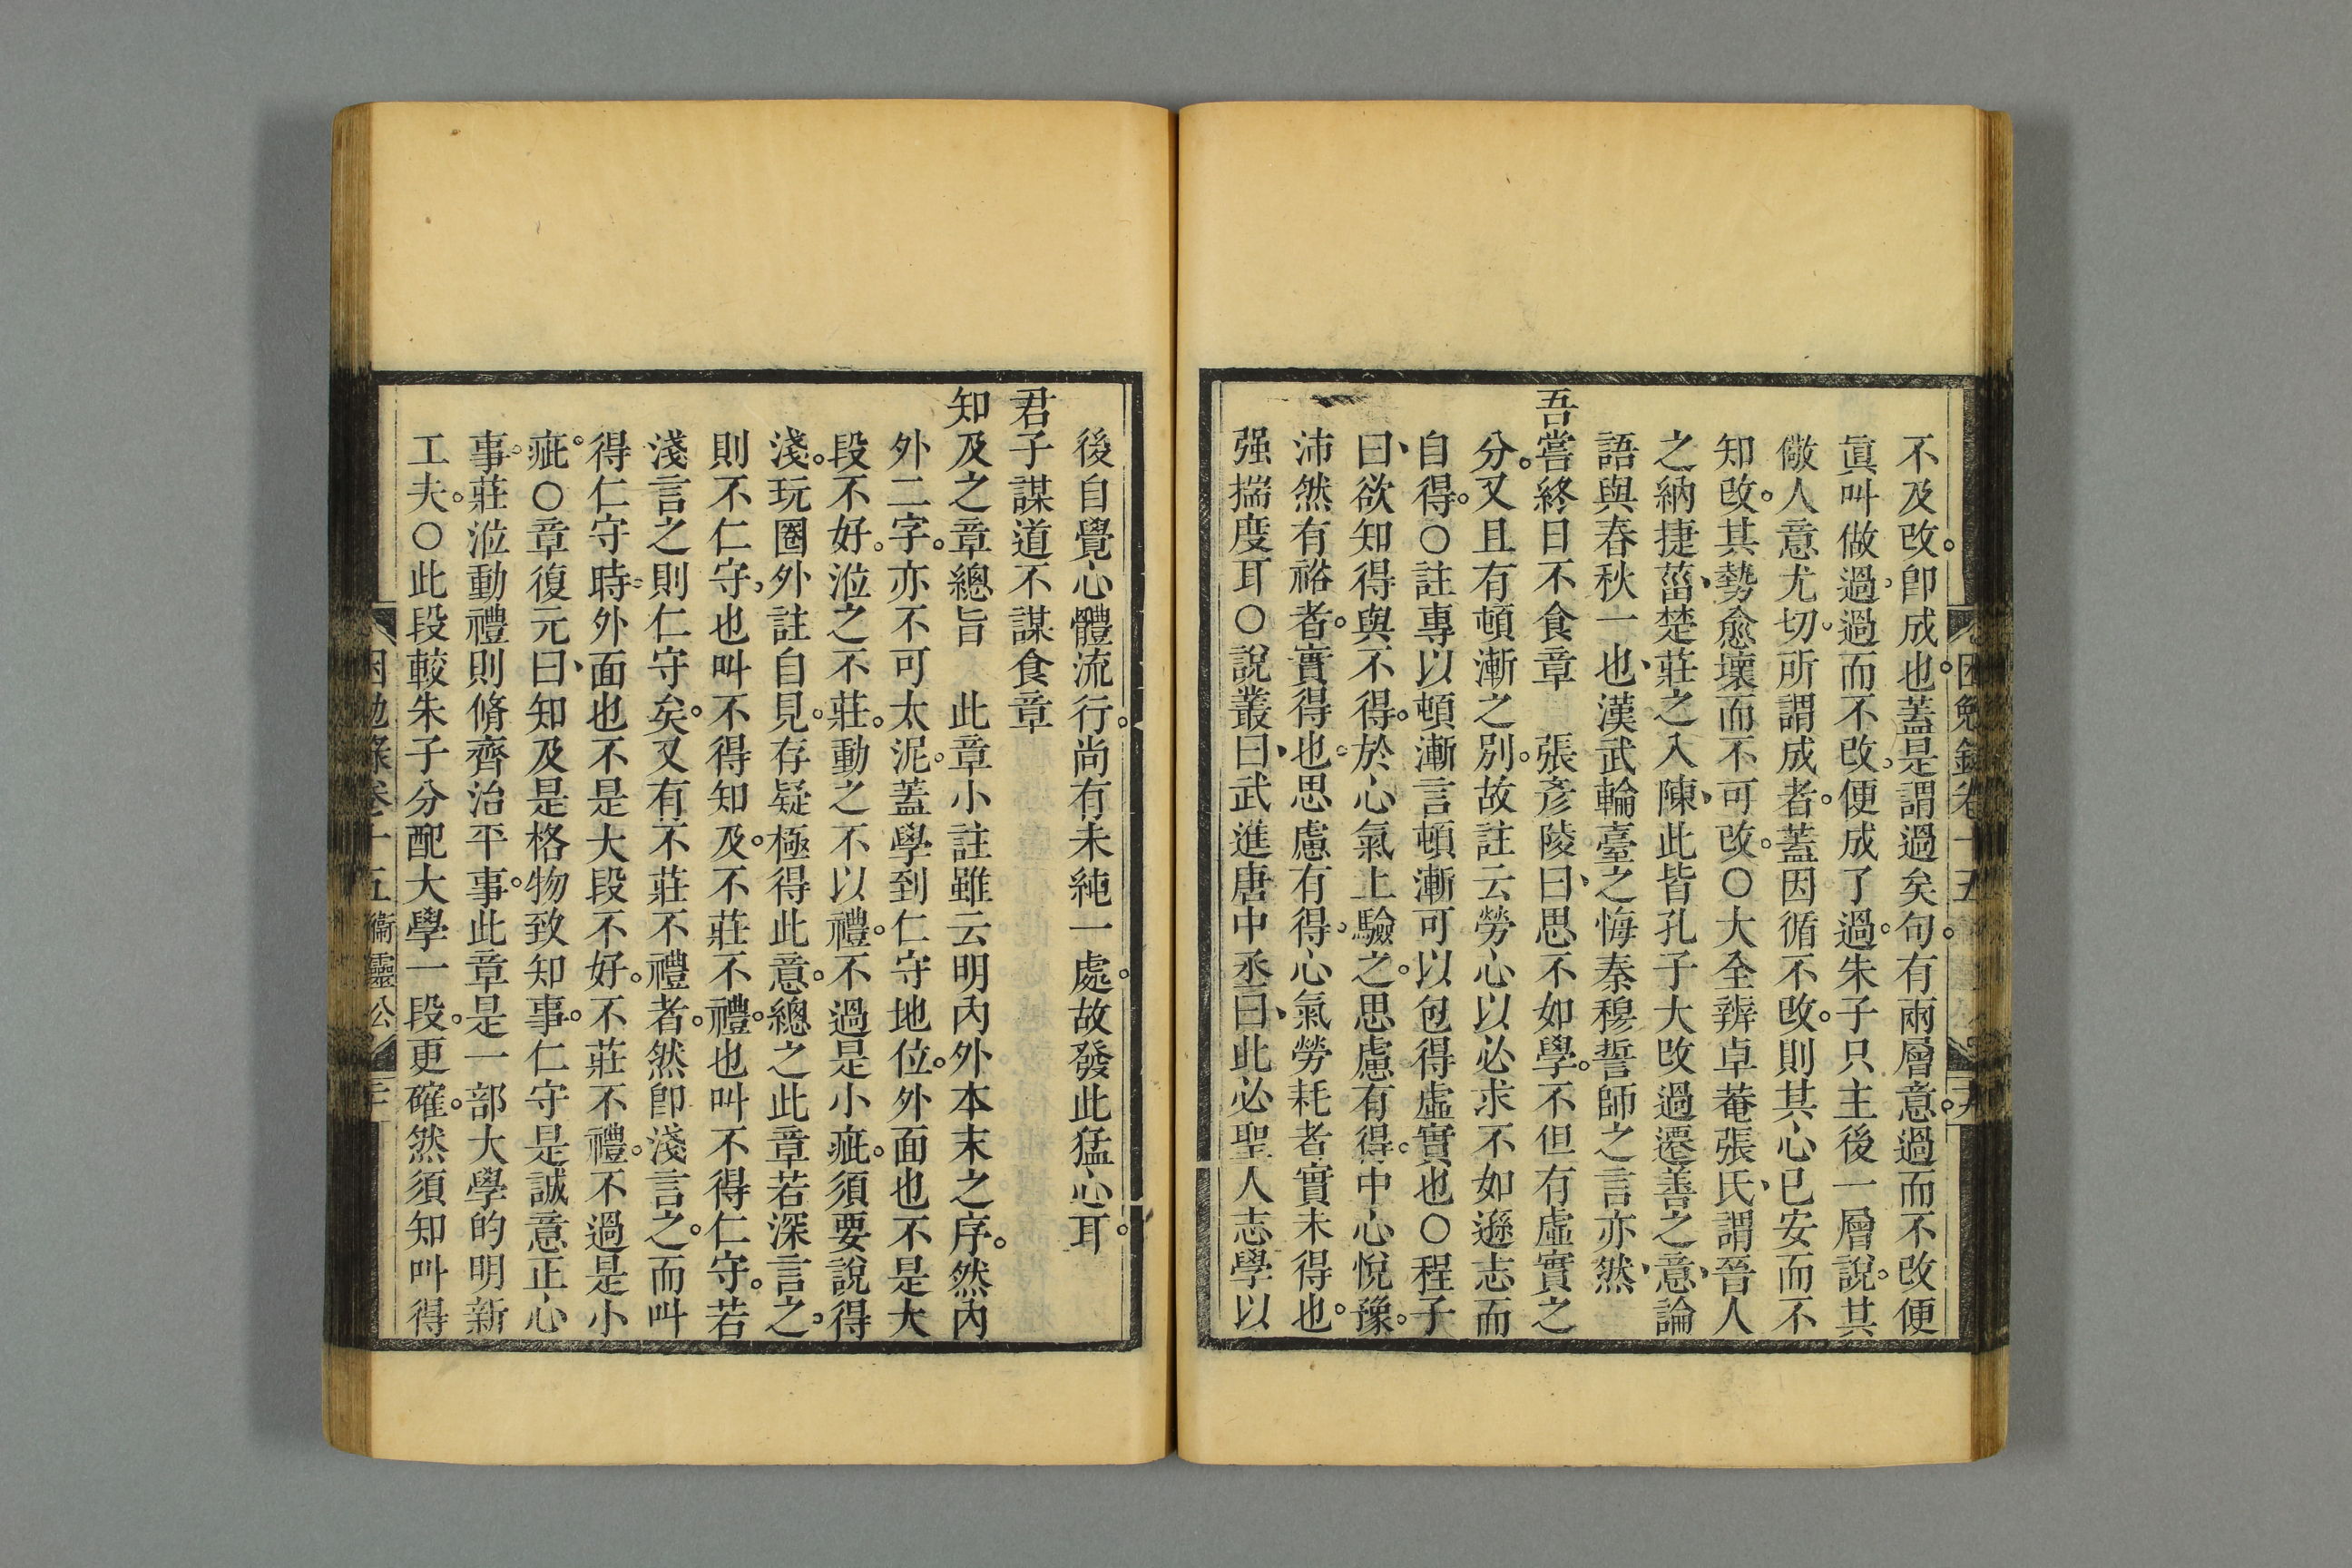 不及改。卽成也。蓋是謂過矣句。有兩層意。過而不改便
眞叫做過。過而不改、便成了過。朱子只主後一層說。其
儆人意尤切。所謂成者。蓋因循不改。則其心已安而不
知改。其勢愈壞而不可改。○大全辨卓菴張氏、謂晉人
之納捷菑、楚莊之入陳、此皆孔子大改過遷善之意、論
語與春秋一也、漢武輪臺之悔秦穆誓師之言亦然、
吾嘗終日不食章　張彥陵曰、思不如學。不但有虛實之
分。又且有頓漸之別。故註云勞心以必求不如遜志而
自得。○註專以頓漸言頓漸可以包得虛實也○程子
曰、欲知得與不得。於心氣上驗之。思慮有得。中心悅豫。
沛然有裕者。實得也。思慮有得、心氣勞耗者實未得也。
强揣度耳○說叢曰、武進唐中丞曰、此必聖人志學以
困勉錄卷十五
後自覺心體流行。尚有未純一處。故發此猛心耳。
君子謀道不謀食章
知及之章總旨　此章小註雖云明內外本末之序。然內
外二字。亦不可太泥。蓋學到仁守地位。外面也不是大
段不好。涖之不莊。動之不以禮。不過是小疵。須要說得
淺。玩圈外註自見。存疑極得此意。總之此章若深言之。
則不仁守、也叫不得知及。不莊不禮。也叫不得仁守。若
淺言之則仁守矣。又有不莊不禮者。然卽淺言之。而叫
得仁守時。外面也不是大段不好。不莊不禮。不過是小
疵。○章復元曰、知及是格物致知事。仁守是誠意正心
事。莊涖動禮則脩齊治平事。此章是一部大學的明新
工夫。○此段較朱子分配大學一段。更確。然須知叫得
困勉錄卷十五　衞靈公